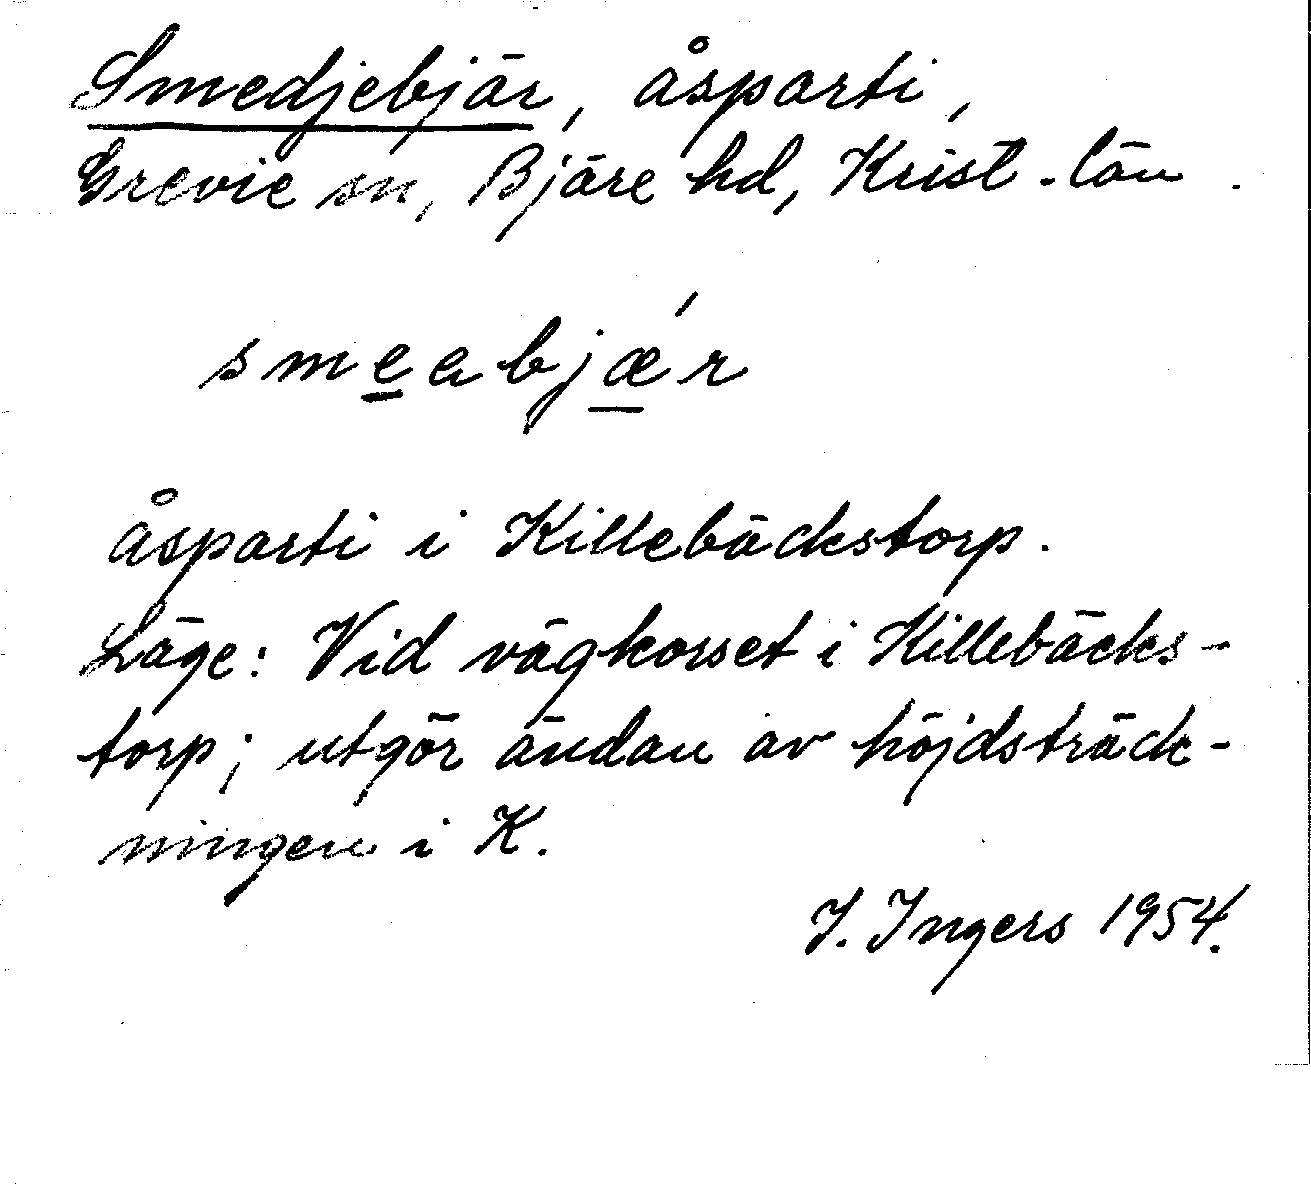 Smedjebjär, åsparti,
Grevie sn, Bjäre hd, Krist. län.
smeabjǽr
åsparti i Killebäckstorp.
Läge: Vid vägkorset i Killebäcks-
torp; utgör ändan av höjdsträck-
ningen i K.
I. Ingers 1954.